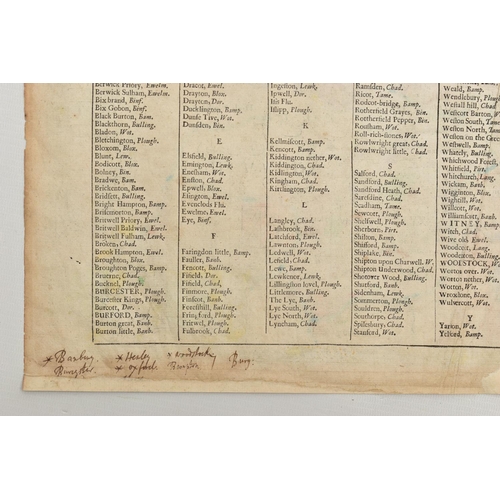 Berwick Priory, Ewelm.
Berwick Salham, Ewelm.
Bix brand, Binf.
Bix Gobon, Binf.
Black Burton, Bam.
Blackthorn, Bulling.
Bladon, Wot.
Bletchington, Plough.
Bloxom, Blox.
Blunt, Lew.
Bodicott, Blox.
Bolney, Bin.
Bradwe, Bam.
Brickenton, Bam.
Bridsett, Bulling.
Bright Hampton, Bamp.
Brismorton, Bamp.
Britwell Priory, Ewel.
Britwell Baldwin, Ewel.
Britwell Fulham, Lewk.
Broken, Chad.
Brook Hampton, Ewel.
Broughton, Blox.
Broughton Poges, Bamp.
Bruerne, Chad.
Bucknel, Plough.
BURCESTER, Plough.
Burcester Kings, Plough.
Burcott, Dor.
BURFORD, Bamp.
Burton great, Banb.
Burton little, Banb.
Dracot, Ewel.
Drayton, Blox.
Drayton, Dor.
Ducklington, Bamp.
Dunse Tive, Wot.
Dunsden, Bin.
E
Elsfield, Bulling.
Emington, Lewk.
Eneham, Wot.
Euston, Chad.
Epwell, Blox.
Etington, Ewel.
Evenclods Flu.
Ewelme, Ewel.
Eye, Binf.
F
Faringdon little, Bamp.
Faulier, Banb.
Fencott, Bulling.
Fifield, Dor.
Fifield, Chad.
Finmore, Plough.
Finstoe, Banb.
Foresthill, Bulling.
Fringford, Plough.
Fritwel, Plough.
Fulbrook, Chad.
Ingeston, Lewk.
Ipwell, Dor.
Isis Flu.
Islipp, Plough.
K
Kellmiscott, Bamp.
Kencott, Bamp.
Kiddington nether, Wot.
Kiddington, Wot.
Kingham, Chad.
Kirtlington, Plough.
L
Langley, Chad.
Lashbrook, Bin.
Latchford, Ewel.
Lawnton, Plough.
Lodwell, Wot.
Lefield, Chad.
Lewe, Bamp.
Lewkenor, Lewk.
Lillington lovel, Plough.
Littlemore, Bulling.
The Lye, Banb.
Lye South, Wot.
Lye North, Wot.
Lyneham, Chad.
Ramsden, Chad.
Ricot, Tame.
Redcot-bridge, Bamp.
Rotherfield Grayes, Bin.
Rotherfield Pepper, Bin.
Rousham, Wot.
Roll-rich-stones, Wot.
Rowlwright great, Chad.
Rowlwright little, Chad.
S
Salford, Chad.
Sandford, Bulling.
Sandford Heath, Chad.
Sarefdine, Chad.
Scalham, Tame.
Sewcott, Plough.
Shellwell, Plough.
Sherborn, Pir.
Shilton, Bamp.
Shifford, Bamp.
Shiplake, Bin.
Shipton upon Charwell, W.
Shipton Underwood, Chad.
Shotover Wood, Chad.
Shutford, Banb.
Sidenham, Lewk.
Sommerton, Plough.
Souldern, Plough.
Southorpe, Chad.
Spilesbury, Chad.
Stanford, Wot.
Weald, Bamp.
Wendlebury, Plough.
Westall hill, Chad.
Westcott Barton, W.
Weston South, Tame.
Weston North,
Weston on the Green
Westwell, Bamp.
Whately, Bulling.
Whichwood Forest,
Whitfield, Pir.
Whitchurch, Lang.
Wickam, Banb.
Wigginton, Blox.
Wighill, Wot.
Willcott, Wot.
Williamscott, Banb.
WITNEY, Bamp.
Witch, Chad.
Wive old, Ewel.
Woodcott, Lang.
Woodeaton, Bulling.
WOODSTOCK, Wot.
Worton over, Wot.
Worton nether, Wot.
Worton, Wot.
Wroxlone, Blox.
Wulvercott, Wot.
Y
Yarton, Wot.
Yelford, Bamp.
* Banbury * Henly * woodstock Burg.
Burcester. * oxford Brampton